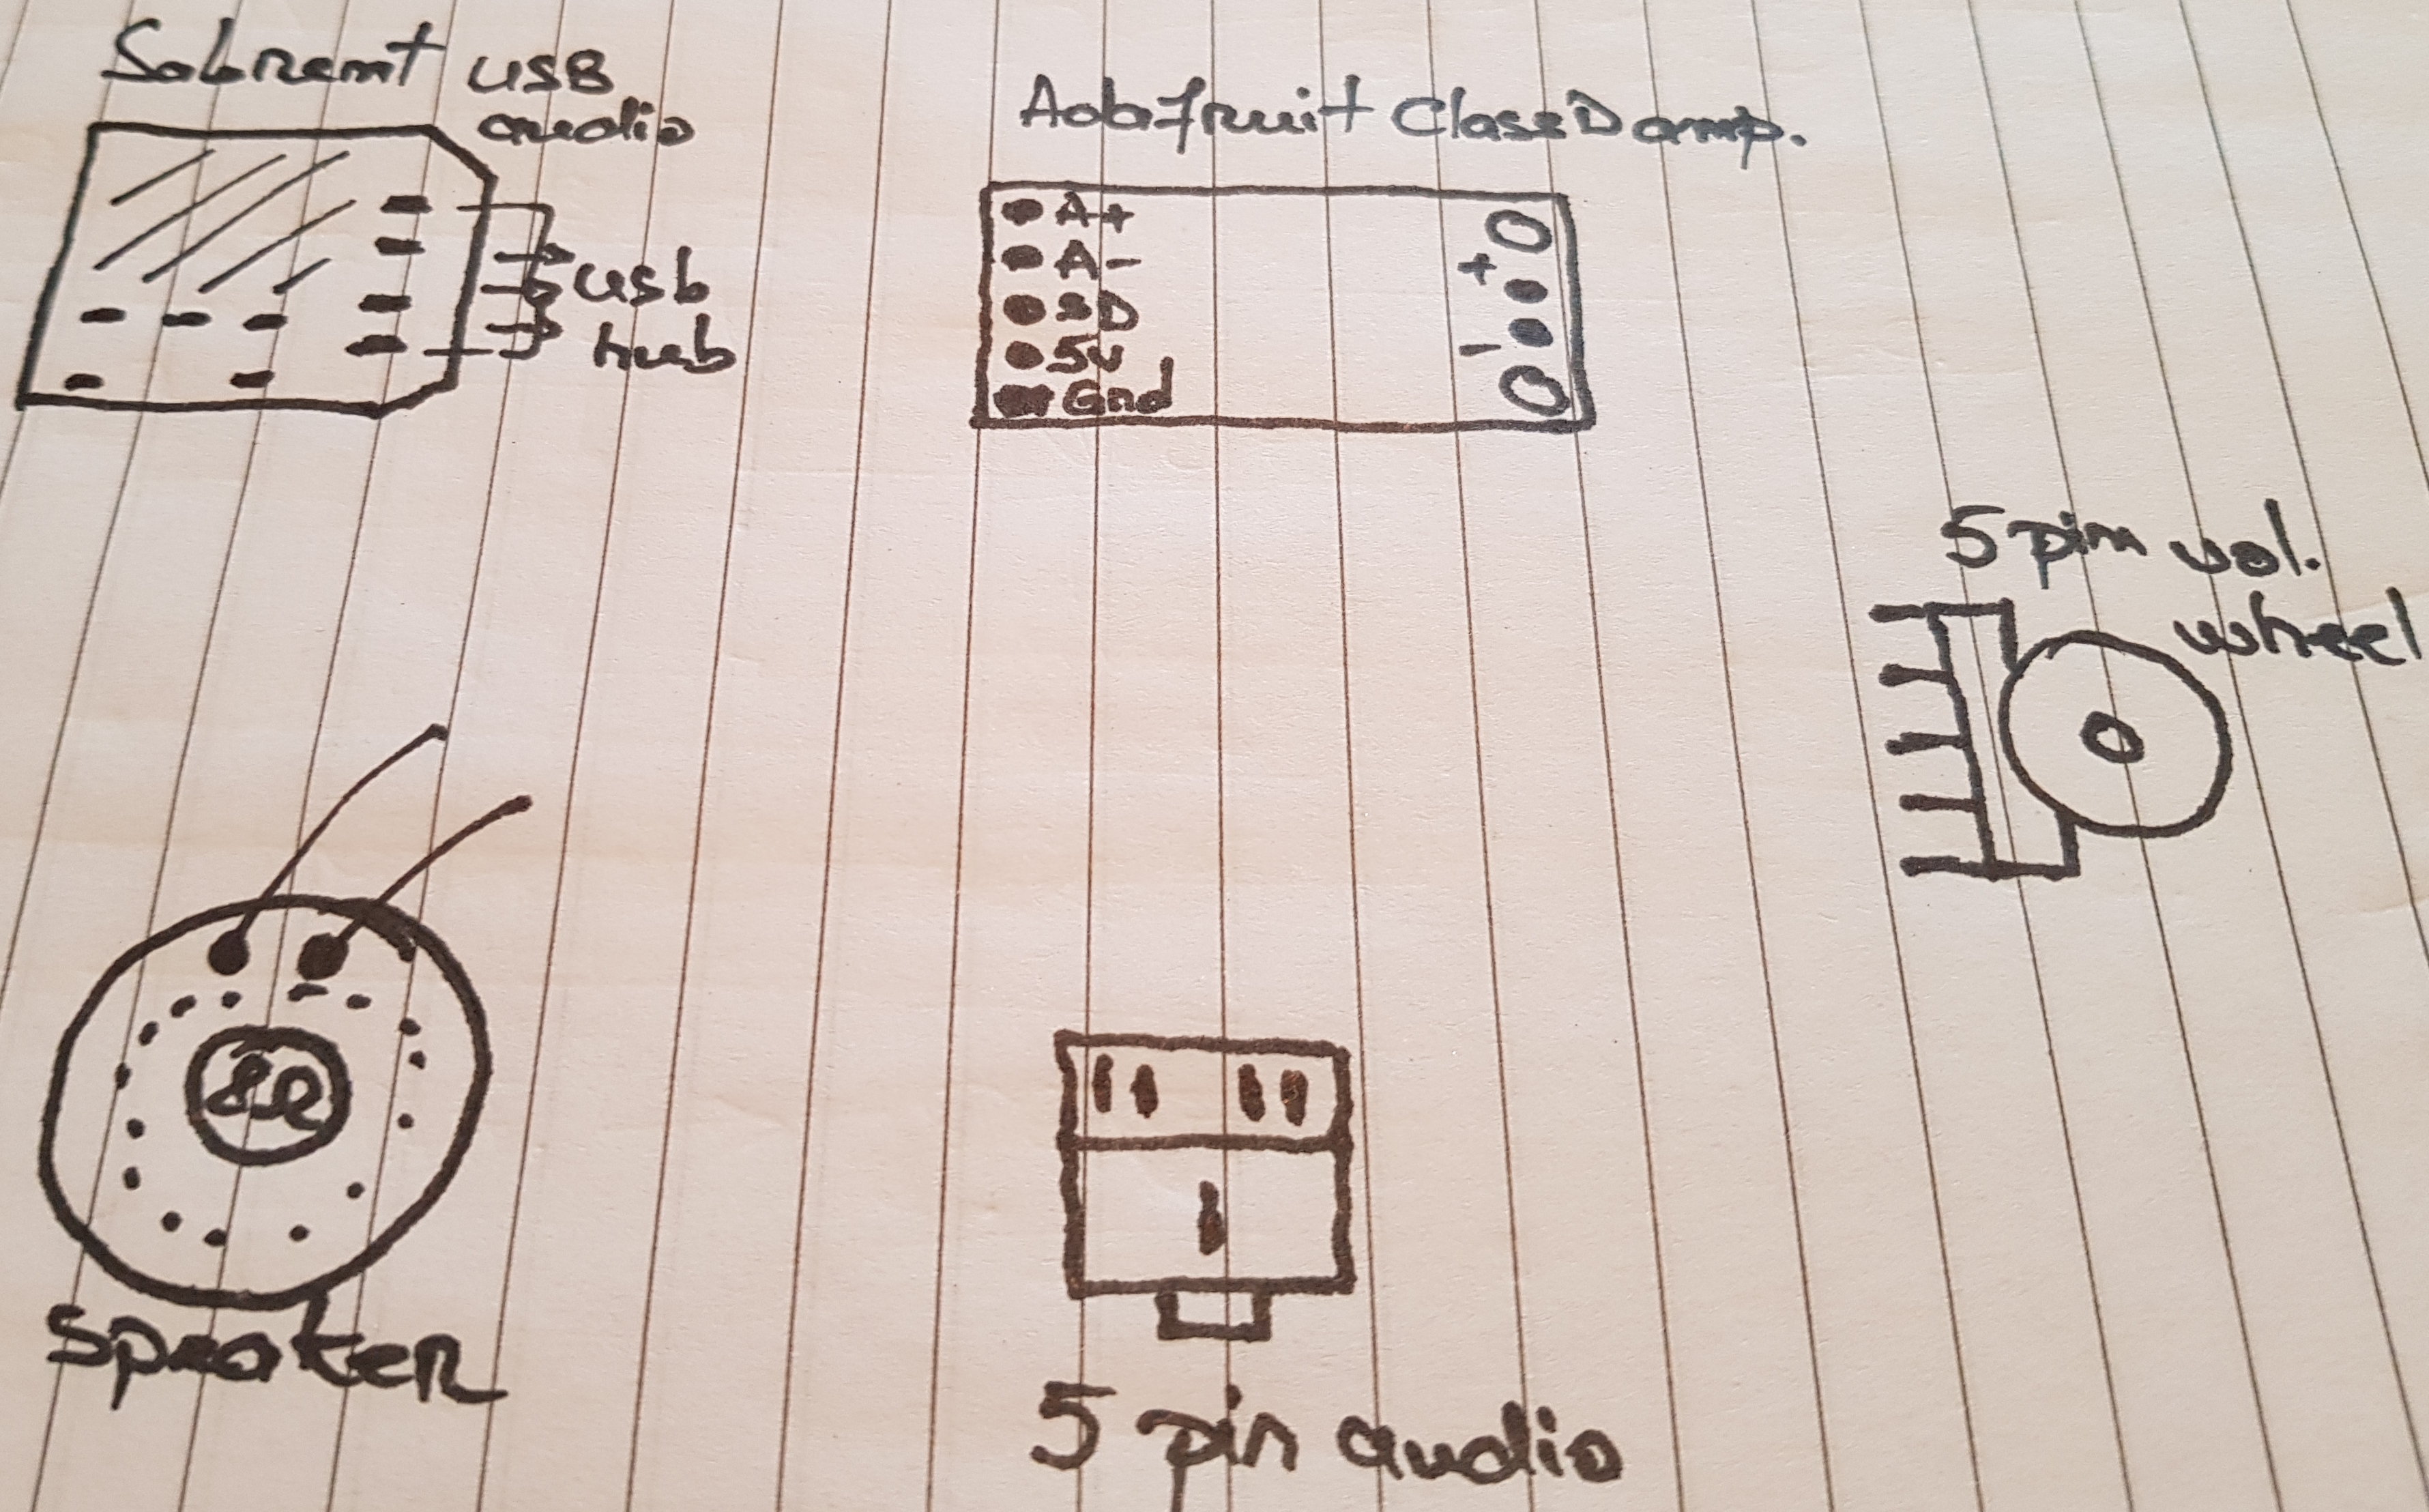 Sabrent USB
audio
usb
hub
Adafruit Class D amp.
A+
A-
SD
5v
Gnd
+
-
5 pin vol.
wheel
8Ω
Speaker
5 pin audio